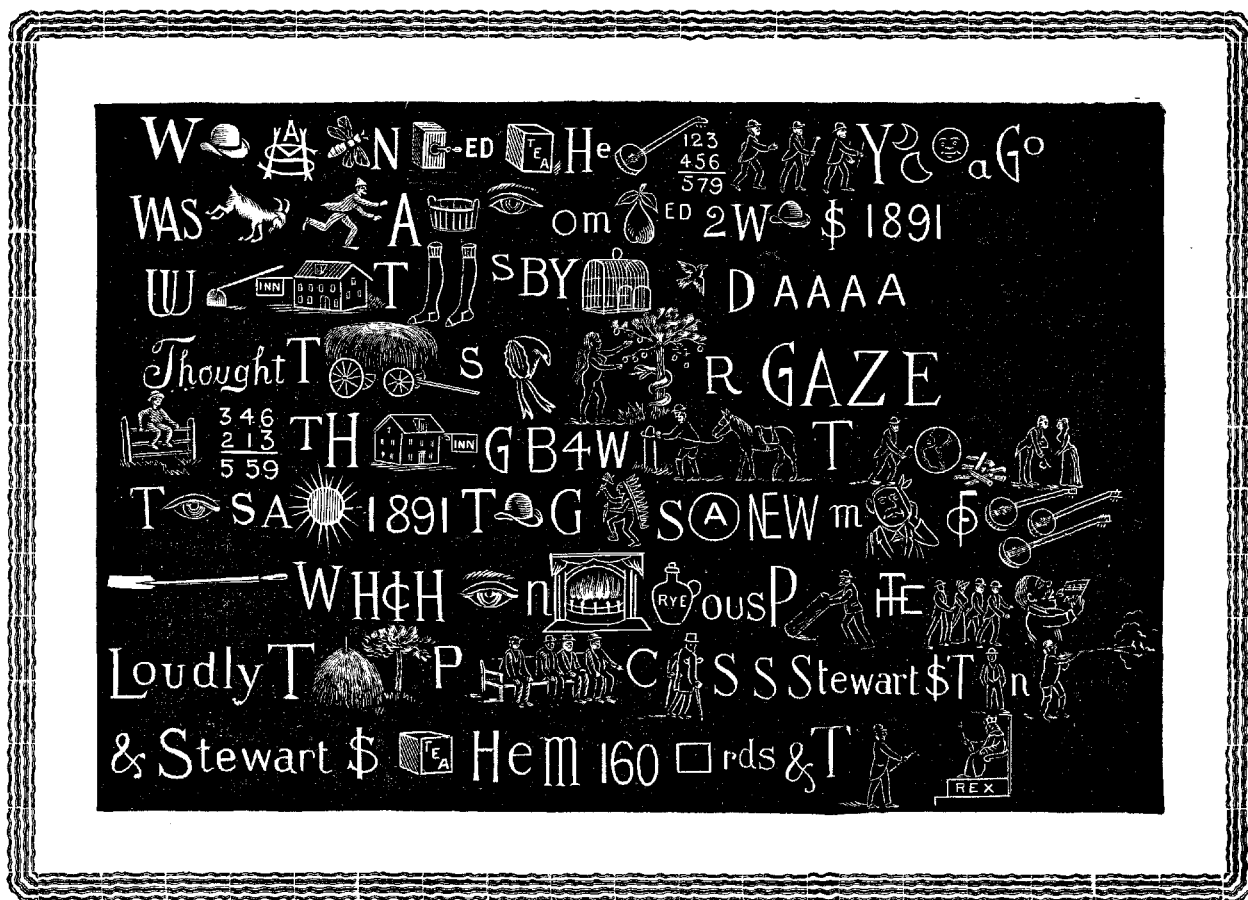 W A M S N ED TEA He 123 456 579 Y a Go
WAS A om ED 2W $ 1891
UU INN T s BY D AAAA
Thought T s R GAZE
346 213 559 TH INN G B4W T
T SA 1891 T G S A NEW m OF
WHICH n RYE ous P THE
Loudly T P C S S Stewart $ T n
& Stewart $ TEA Hem 160 rds & T REX